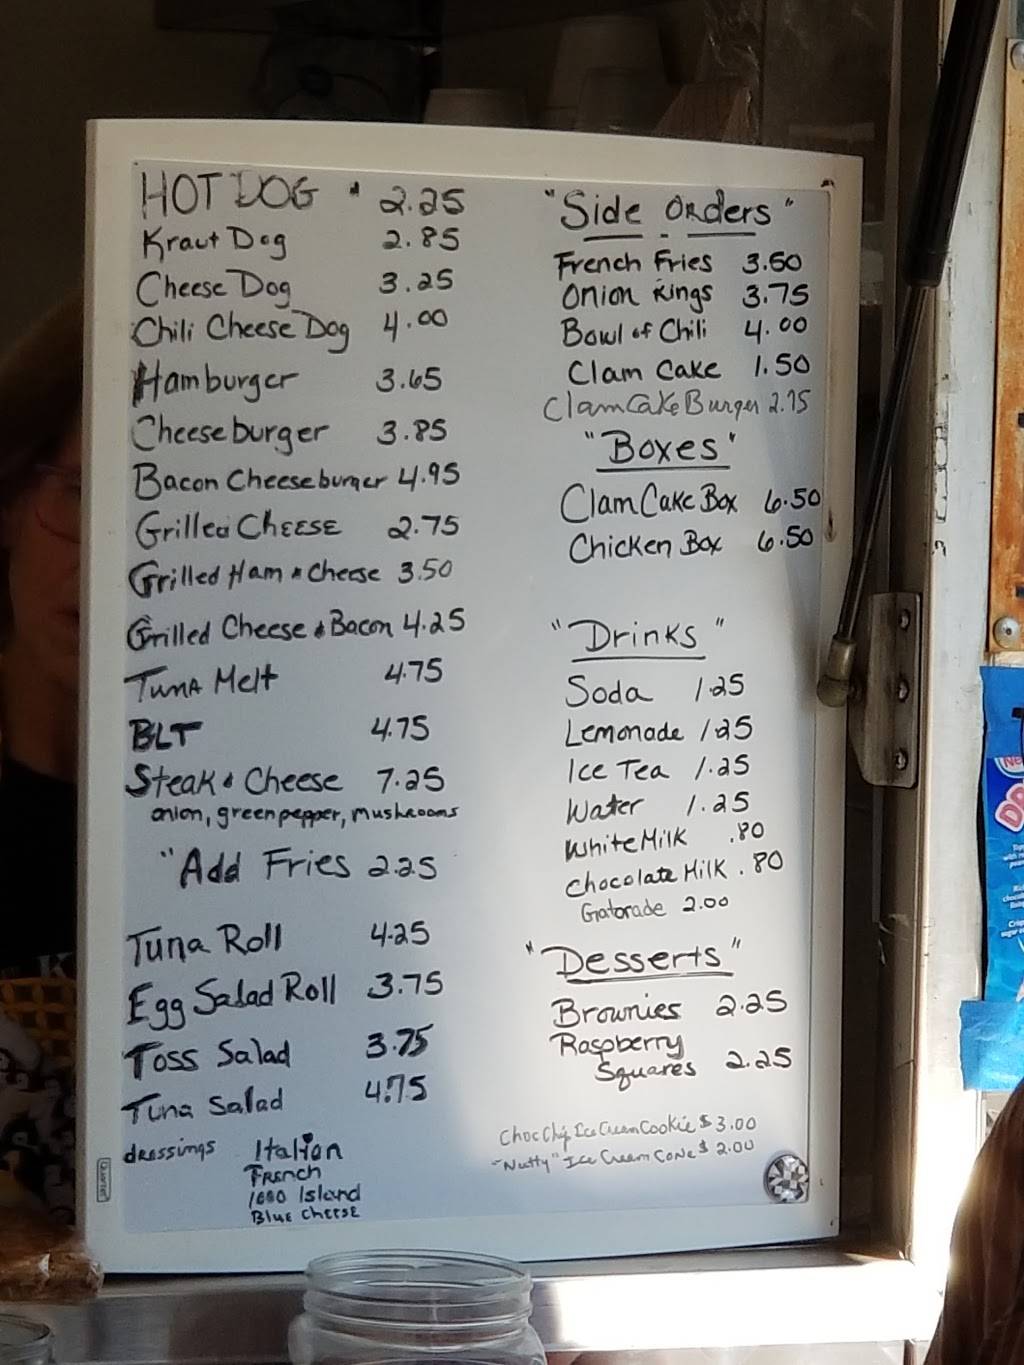 HOT DOG 2.25
Kraut Dog 2.85
Cheese Dog 3.25
Chili Cheese Dog 4.00
Hamburger 3.65
Cheeseburger 3.85
Bacon Cheeseburger 4.95
Grilled Cheese 2.75
Grilled Ham & Cheese 3.50
Grilled Cheese & Bacon 4.25
Tuna Melt 4.75
BLT 4.75
Steak & Cheese 7.25
onion, green pepper, mushrooms
"Add Fries 2.25
Tuna Roll 4.25
Egg Salad Roll 3.75
Toss Salad 3.75
Tuna Salad 4.75
dressings Italian
French
1000 Island
Blue Cheese
"Side Orders"
French Fries 3.50
Onion Rings 3.75
Bowl of Chili 4.00
Clam Cake 1.50
Clam Cake Burger 2.75
"Boxes"
Clam Cake Box 6.50
Chicken Box 6.50
"Drinks"
Soda 1.25
Lemonade 1.25
Ice Tea 1.25
Water 1.25
White Milk .80
Chocolate Milk .80
Gatorade 2.00
"Desserts"
Brownies 2.25
Raspberry
Squares 2.25
Choc Chip Ice Cream Cookie $3.00
"Nutty" Ice Cream Cone $2.00
QUARTET